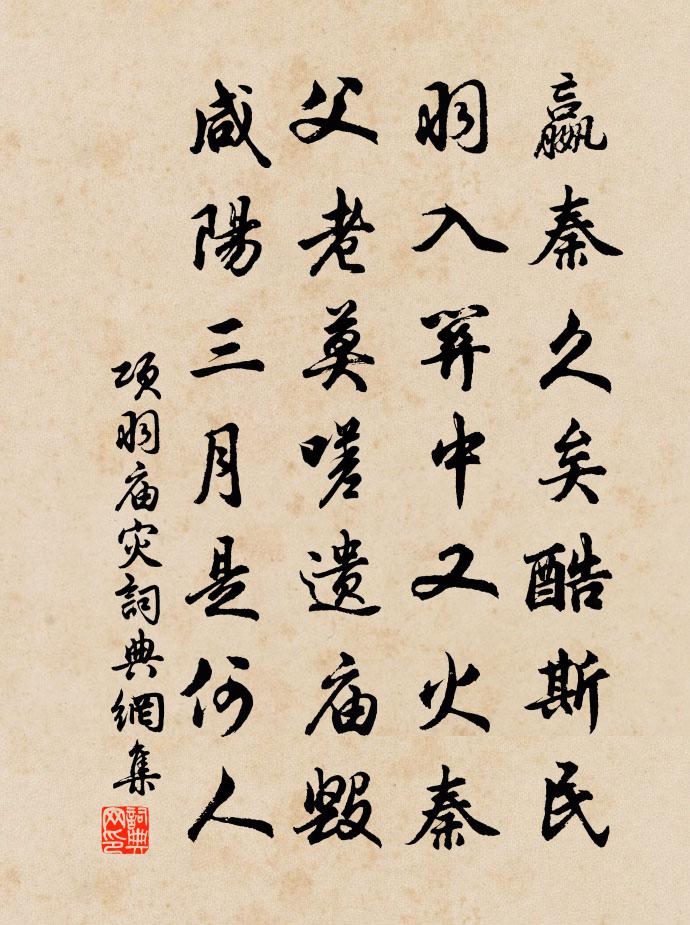 嬴秦久矣酷斯民
羽入关中又火秦
父老莫嗟遗庙毁
咸陽三月是何人
项羽庙灾詞典網集
詞典网印